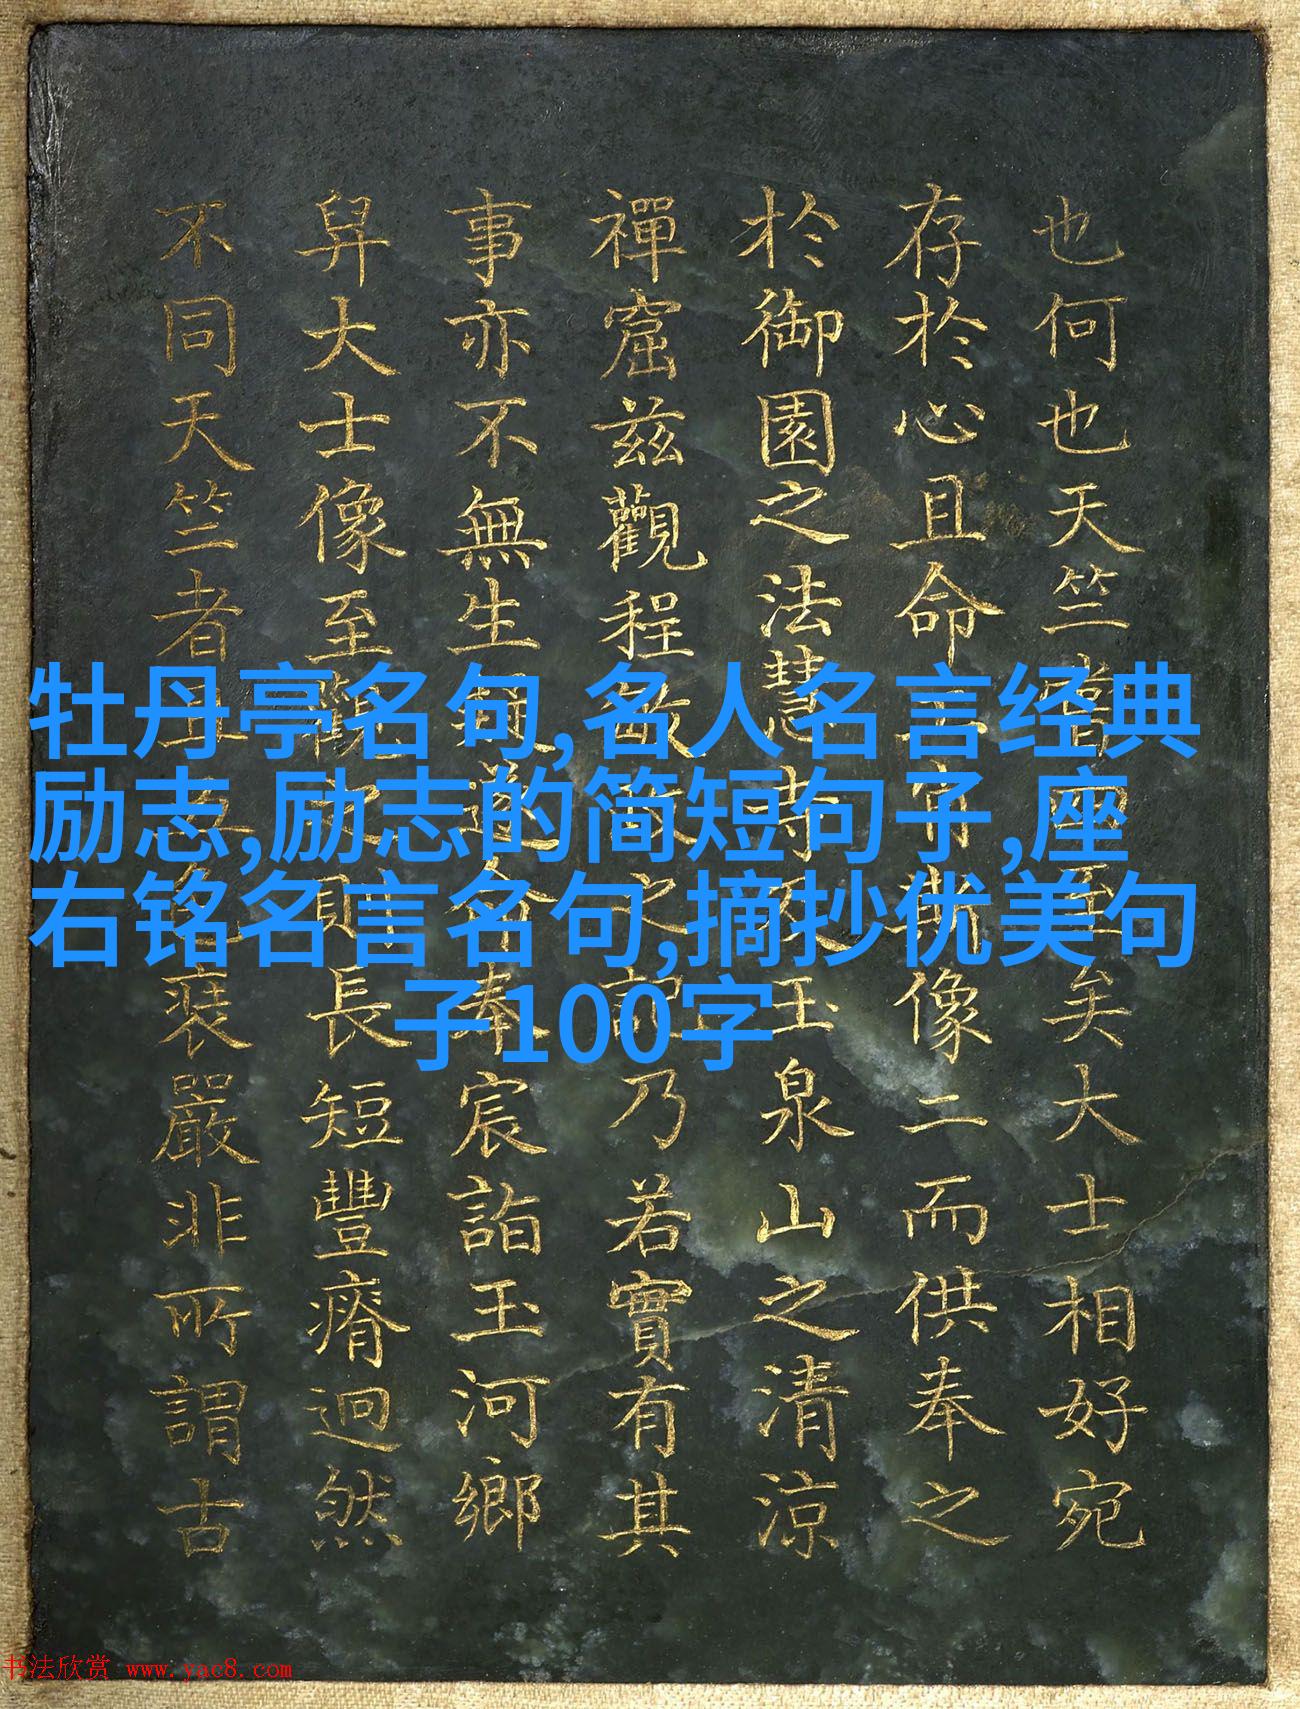 牡丹亭名句,名人名言经典
励志,励志的简短句子,座
右铭名言名句,摘抄优美句
子100字
也何也天竺至矣大士相好宛
存於心且命工像二而供奉之
於御園之法慧寺及玉泉山之清涼
禪窟兹觀程敏政之記乃若實有其
事亦不無生疑奉宸詣玉河鄉
舁大士像至觀之則長短豐瘠迥然
不同天竺者且裝嚴非所謂古
书法欣赏 www.yac8.com